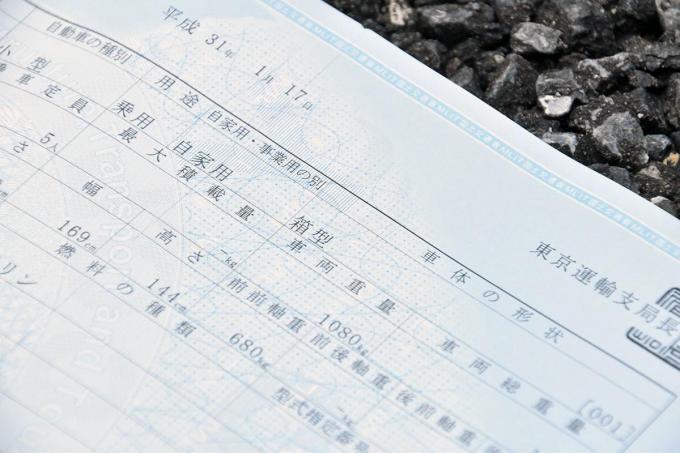 平成 31年 1月 17日
東京運輸支局長
自動車の種別 用途 自家用・事業用の別 車体の形状
小型 乗用 自家用 箱型 [001]
乗車定員 最大積載量 車両重量 車両総重量
5人 -kg 1080kg
さ 幅 高さ 前前軸重 前後軸重 後前軸重
169cm 144cm 680kg -kg
燃料の種類 型式指定番号
リン